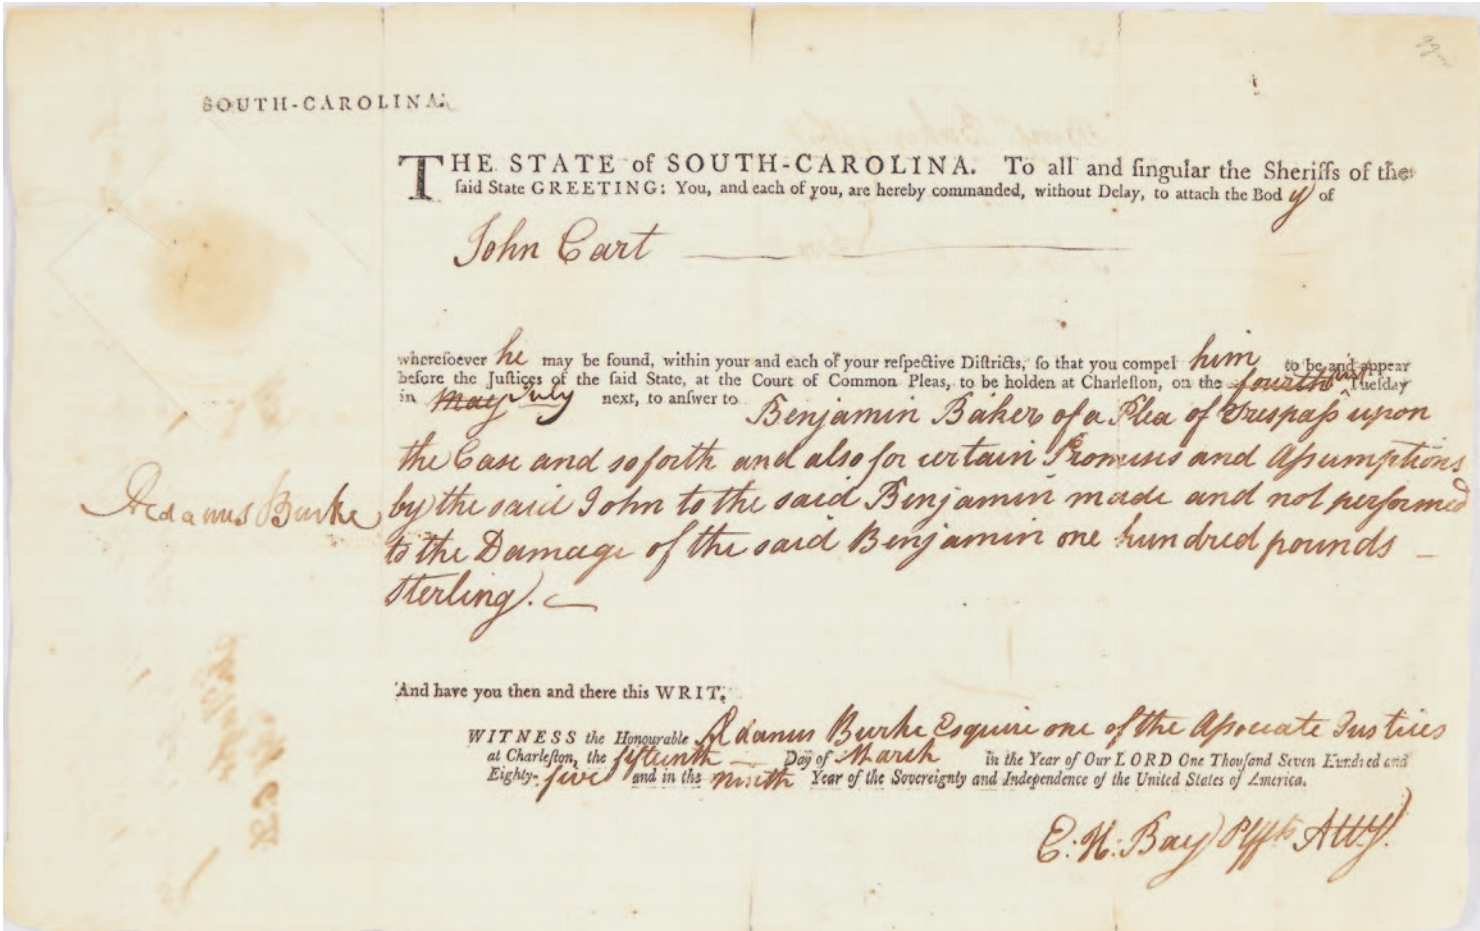 SOUTH-CAROLINA.
THE STATE of SOUTH-CAROLINA. To all and ſingular the Sheriffs of the
ſaid State GREETING: You, and each of you, are hereby commanded, without Delay, to attach the Body of
John Cart
whereſoever he may be found, within your and each of your reſpective Diſtricts, ſo that you compel him to be and appear
before the Juſtices of the ſaid State, at the Court of Common Pleas, to be holden at Charleſton, on the fourth Tueſday
in May July next, to anſwer to Benjamin Baker of a Plea of Treſpaſs upon
the Case and so forth and also for certain Promises and Aſsumptions
by the said John to the said Benjamin made and not performed
Aedanus Burke
to the Damage of the said Benjamin one hundred pounds
Sterling.
And have you then and there this WRIT.
WITNESS the Honourable Aedanus Burke Esquire one of the Aſsociate Justices
at Charleſton, the fifteenth Day of March in the Year of Our LORD One Thouſand Seven Hundred and
Eighty-five and in the ninth Year of the Sovereignty and Independence of the United States of America.
E: H: Bay Plffs Atty.